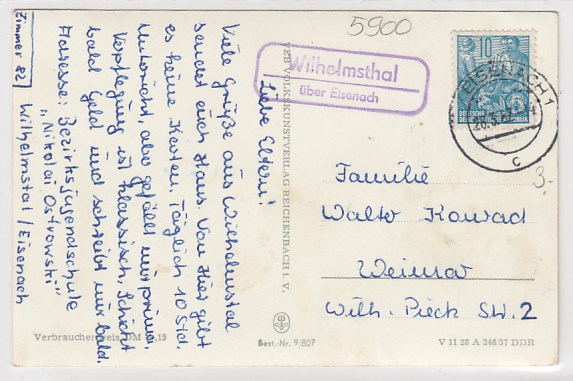 5900
Wilhelmsthal
über Eisenach
10
DEUTSCHE
DEMOKRATISCHE REPUBLIK
EISENACH 1
c
Liebe Eltern!
Viele Grüße aus Wilhelmstal
sendet euch Klaus. Von Hier gibt
es keine Karten. Täglich 10 Std.
Unterricht, aber gefällt mir prima.
Verpflegung ist klassisch, Schickt
bald Geld und schreibt mir bald.
Adresse: Bezirksjugendschule
„Nikolai Ostrowski"
Wilhelmstal / Eisenach
Zimmer 82
VEB VOLKSKUNSTVERLAG REICHENBACH I. V.
Familie
Walter Konrad
Weimar
Wilh. Pieck Str. 2
3.-
Verbraucherpreis DM 0,15
Best.-Nr. 9/807
V 11 28 A 246/57 DDR